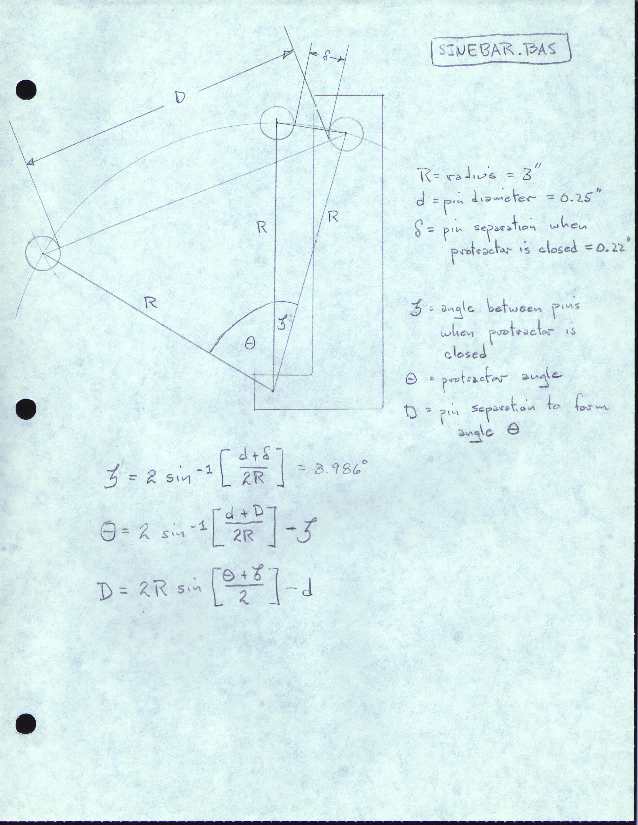 SINEBAR.BAS
δ
D
R
R
R
ζ
θ
R = radius = 3"
d = pin diameter = 0.25"
δ = pin separation when
protractor is closed = 0.22"
ζ = angle between pins
when protractor is
closed
θ = protractor angle
D = pin separation to form
angle θ
ζ = 2 sin⁻¹ [ (d+δ)/2R ] = 8.986°
θ = 2 sin⁻¹ [ (d+D)/2R ] - ζ
D = 2R sin [ (θ+ζ)/2 ] - d